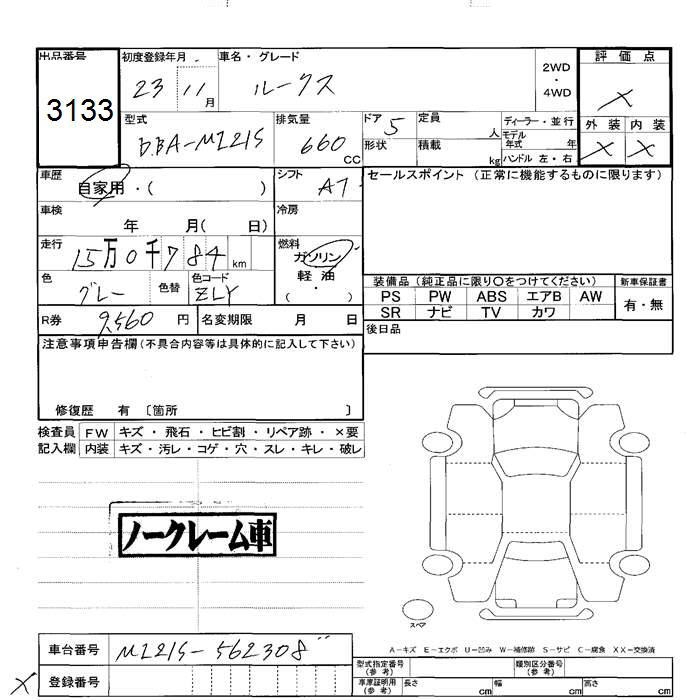 出品番号 初度登録年月 車名・グレード 2WD・4WD 評価点
3133 23 11月 ルークス X
型式 排気量 ドア 定員 ディーラー・並行 外装 内装
DBA-ML21S 660 CC 5 人 モデル年式 年 X X
形状 積載 kg ハンドル 左・右
車歴 シフト セールスポイント (正常に機能するものに限ります)
自家用・( ) AT
車検 冷房
年 月( 日)
走行 燃料
15万0千784 km ガソリン
軽・油
・( )
色 色替 色コード 装備品 (純正品に限り〇をつけてください) 新車保証書
グレー ZLY PS PW ABS エアB AW 有・無
SR ナビ TV カワ
R券 9,560 円 名変期限 月 日 後日品
注意事項申告欄 (不具合内容等は具体的に記入して下さい)
修復歴 有 〔箇所 〕
検査員 FW キズ・飛石・ヒビ割・リペア跡・×要
記入欄 内装 キズ・汚レ・コゲ・穴・スレ・キレ・破レ
ノークレーム車
スペア
A-キズ E-エクボ U-凹み W-補修跡 S-サビ C-腐食 XX-交換済
車台番号 ML21S-562308
X 登録番号
型式指定番号 (参考) 類別区分番号 (参考)
車庫証明用 (参考) 長さ cm 幅 cm 高さ cm